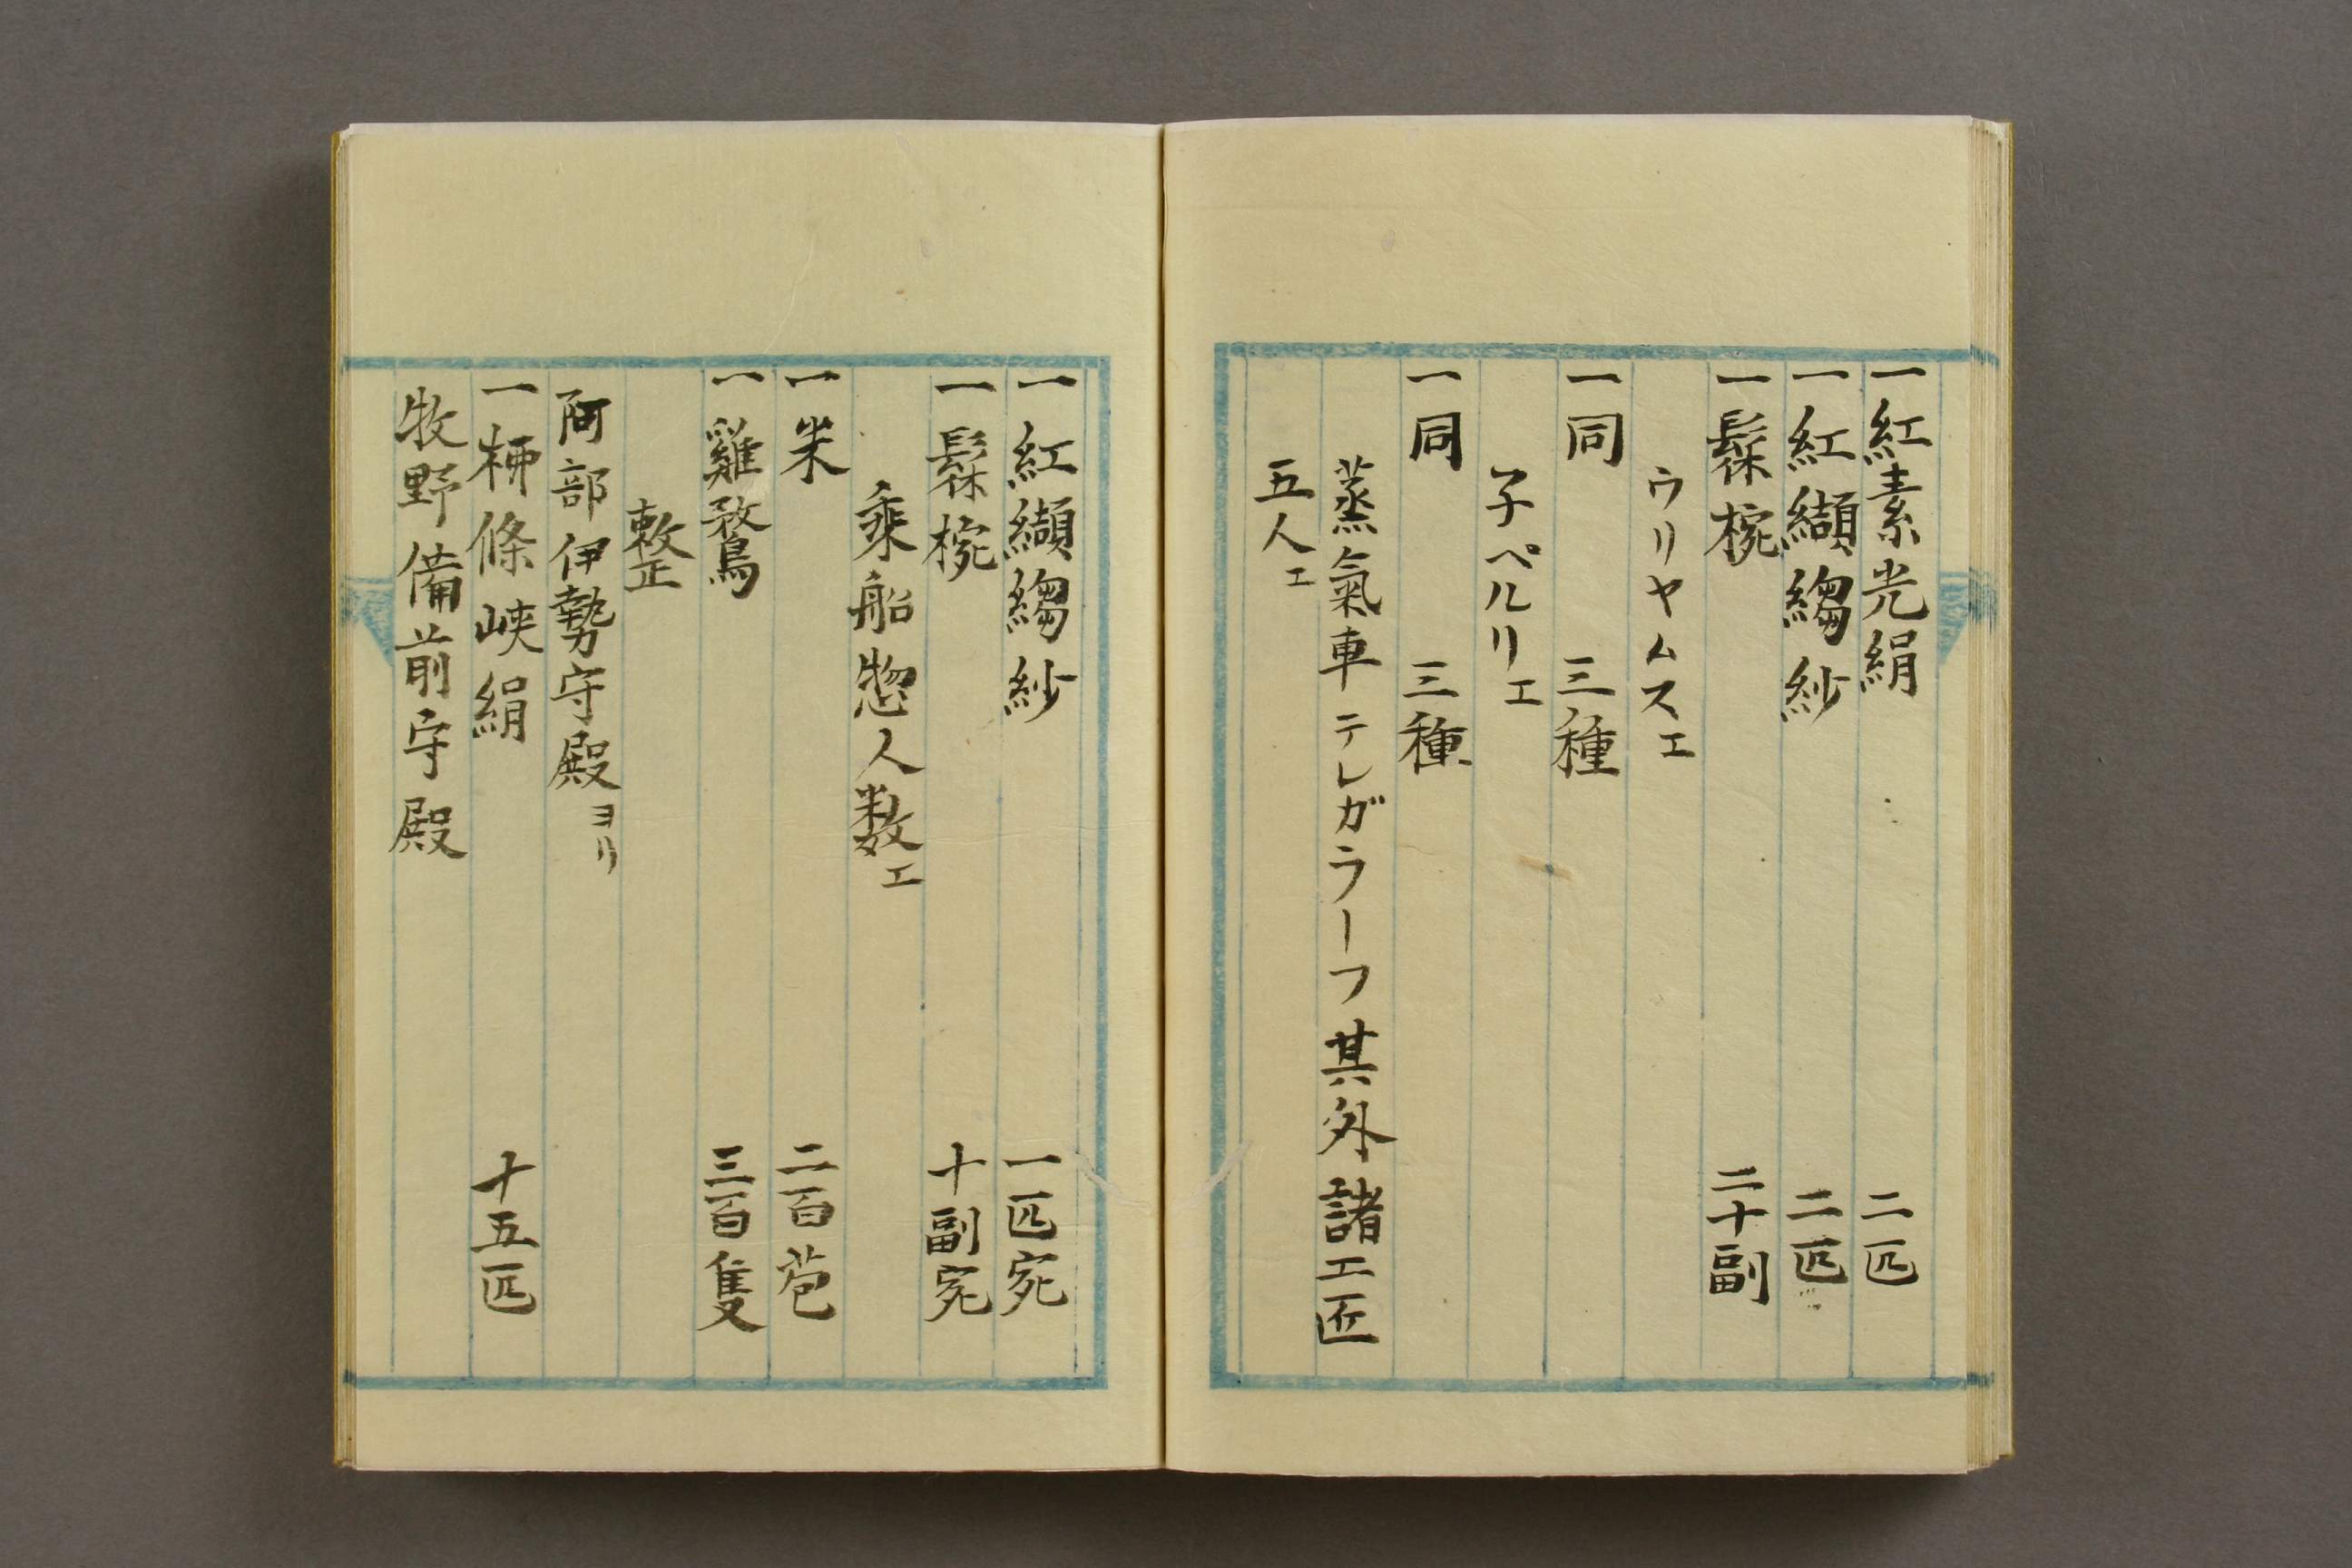 一紅素光絹 二匹
一紅纈縐紗 二匹
一髹椀 二十副
ウリヤムスエ
一同 三種
子ペルリエ
一同 三種
蒸氣車テレガラーフ其外諸工匠
五人エ
一紅纈縐紗 一匹宛
一髹椀 十副宛
乘船惣人数エ
一米 二百苞
一雞鶩 三百隻
整
阿部伊勢守殿ヨリ
一柳條峽絹 十五匹
牧野備前守殿